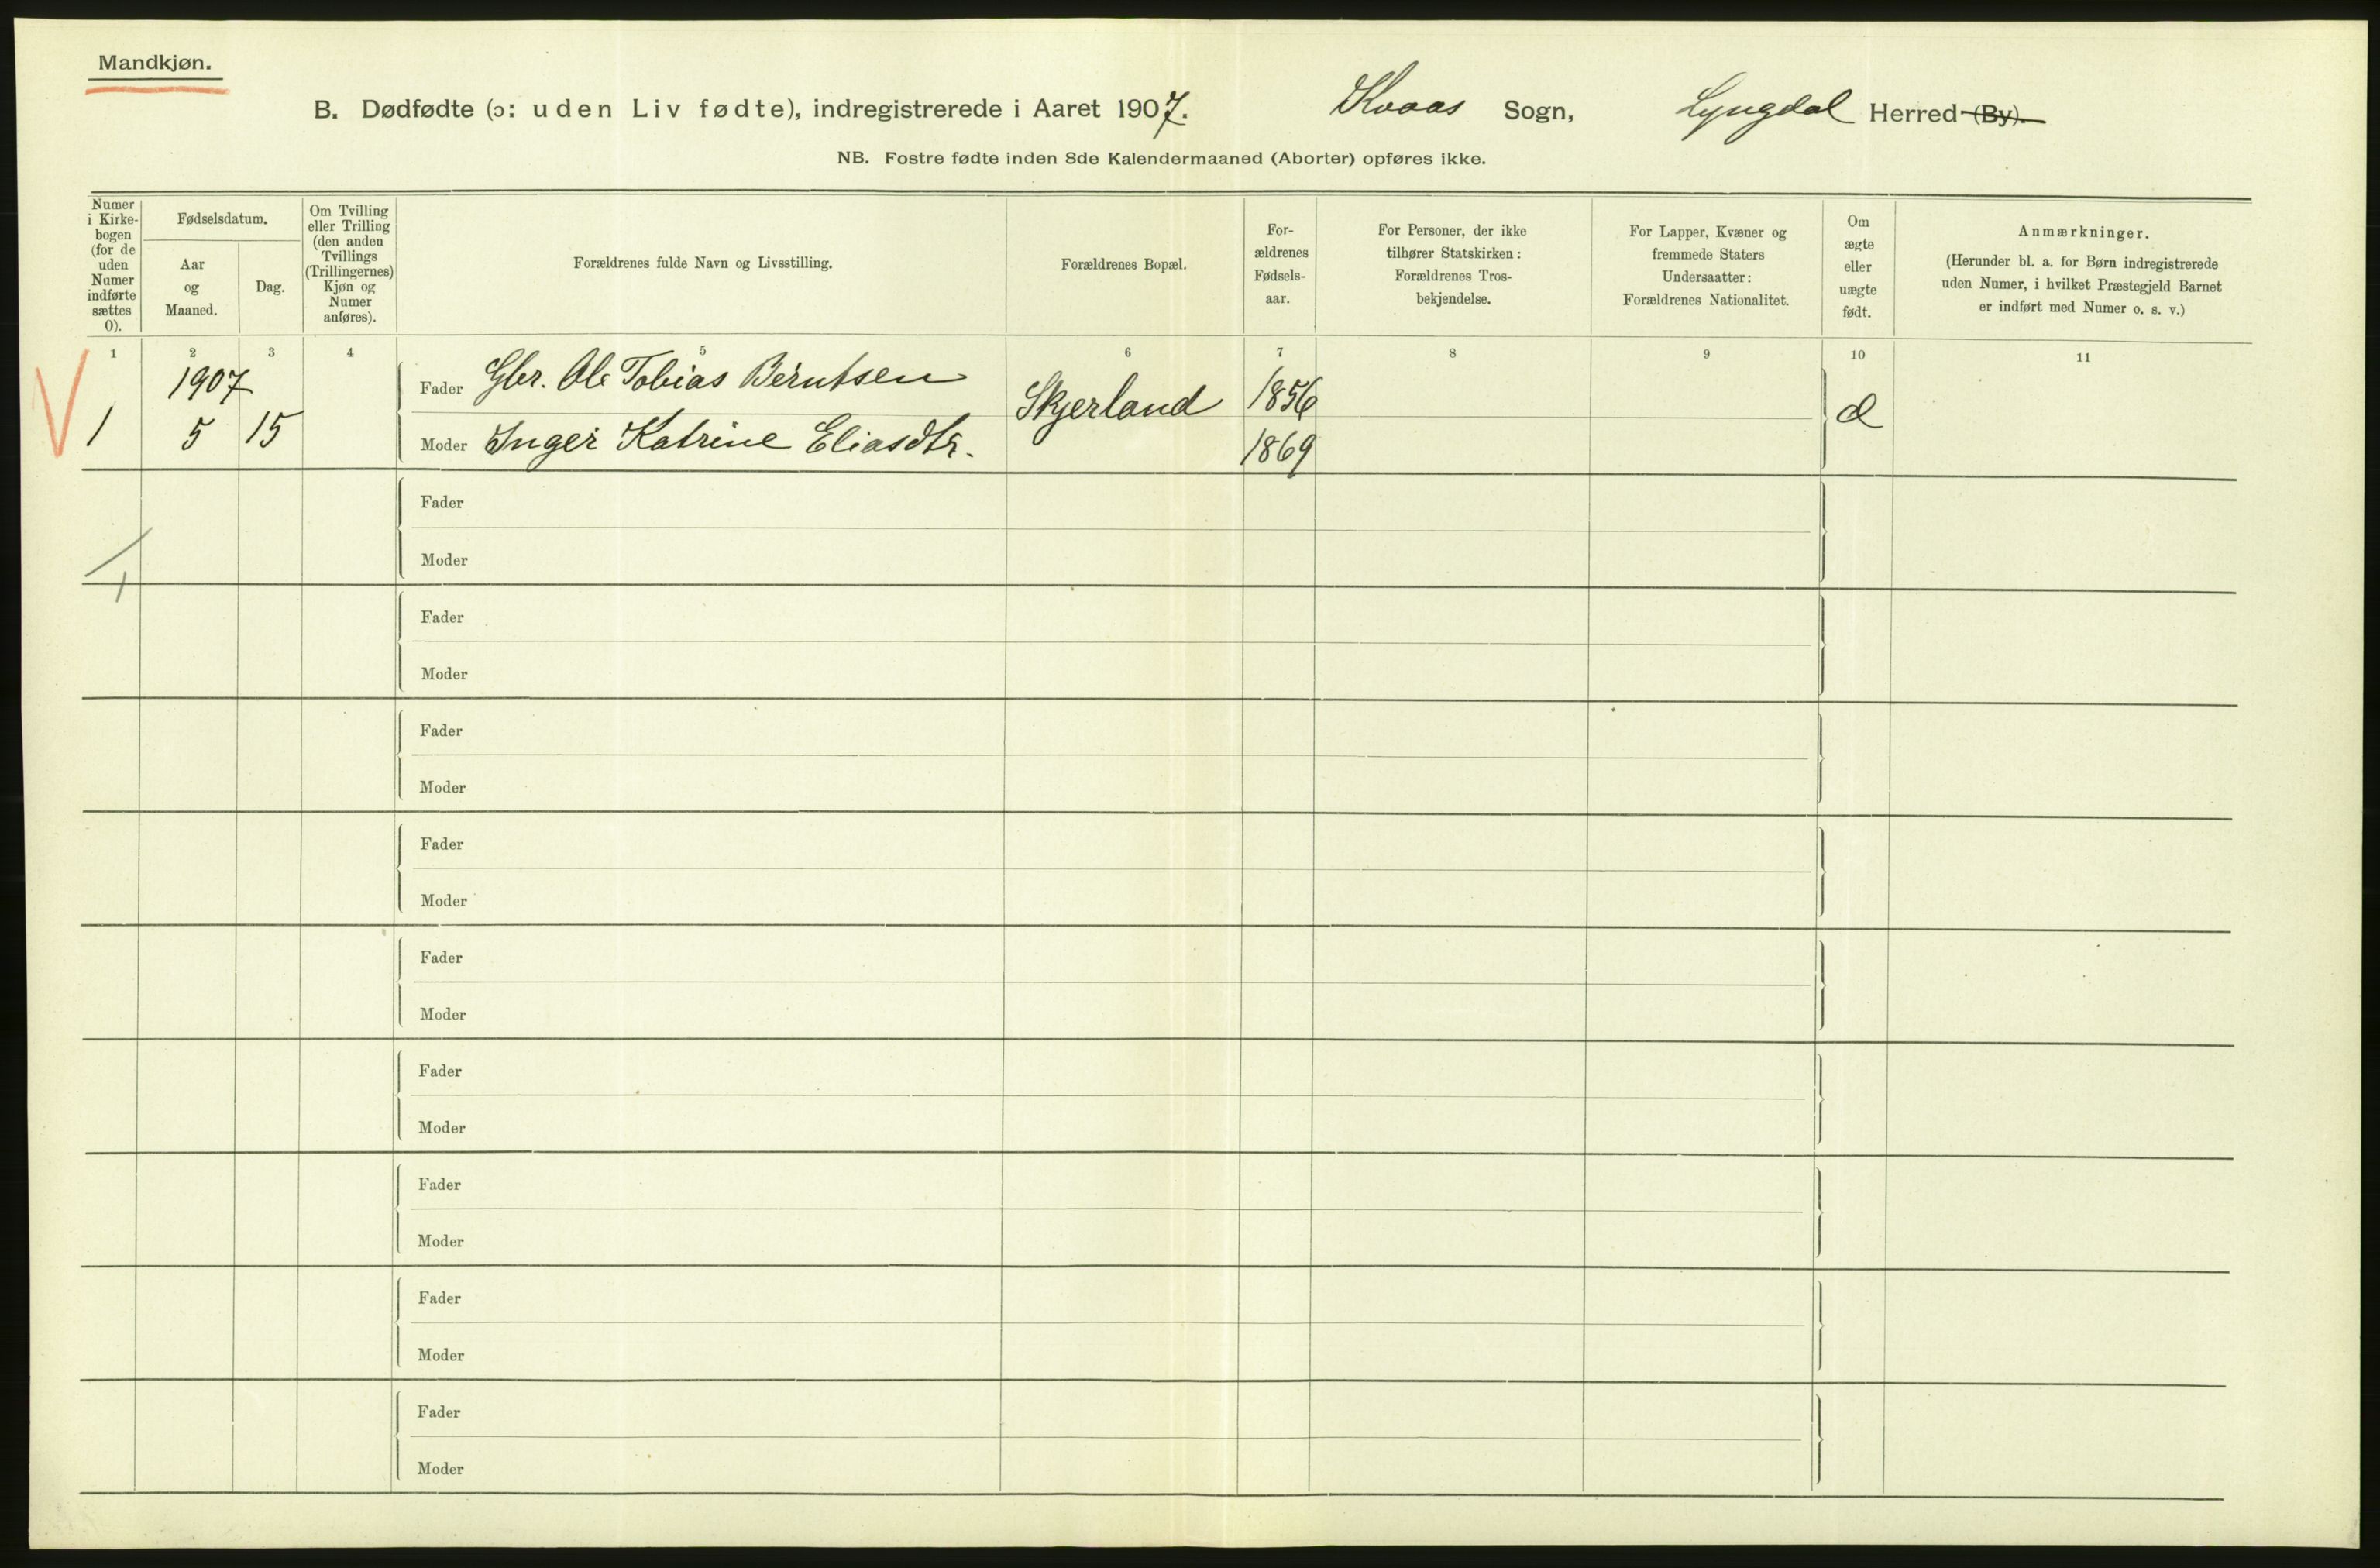 Mandkjøn.
B. Dødfødte (ɔ: uden Liv fødte), indregistrerede i Aaret 1907. Kvaas Sogn, Lyngdal Herred (By).
NB. Fostre fødte inden 8de Kalendermaaned (Aborter) opføres ikke.
Numer
i Kirke-
bogen
(for de
uden
Numer
indførte
sættes
0).
Fødselsdatum.
Aar
og
Maaned.
Dag.
Om Tvilling
eller Trilling
(den anden
Tvillings
(Trillingernes)
Kjøn og
Numer
anføres).
Forældrenes fulde Navn og Livsstilling.
Forældrenes Bopæl.
For-
ældrenes
Fødsels-
aar.
For Personer, der ikke
tilhører Statskirken:
Forældrenes Tros-
bekjendelse.
For Lapper, Kvæner og
fremmede Staters
Undersaatter:
Forældrenes Nationalitet.
Om
ægte
eller
uægte
født.
Anmærkninger.
(Herunder bl. a. for Børn indregistrerede
uden Numer, i hvilket Præstegjeld Barnet
er indført med Numer o. s. v.)
1 2 3 4 5 6 7 8 9 10 11
1907
Fader Gbr. Ole Tobias Berntsen Skjerland 1856
1 5 15 Moder Inger Katrine Eliasdtr. 1869
Fader
Moder
1
Fader
Moder
Fader
Moder
Fader
Moder
Fader
Moder
Fader
Moder
Fader
Moder
Fader
Moder
Fader
Moder